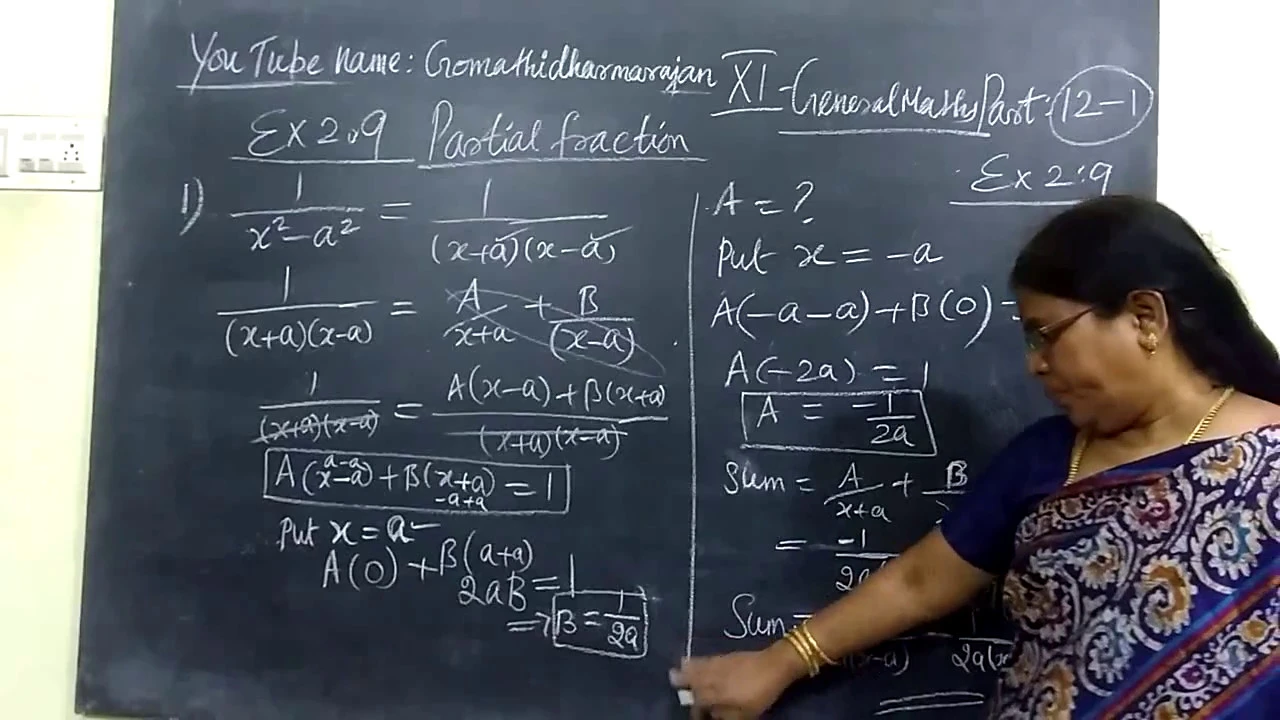 YouTube name: Gomathidharmarajan XI - General Maths Part: 12-1
Ex 2.9 Partial fraction
1) 1/(x² - a²) = 1/((x+a)(x-a))
1/((x+a)(x-a)) = A/(x+a) + B/(x-a)
1/((x+a)(x-a)) = (A(x-a) + B(x+a))/((x+a)(x-a))
a-a
A(x-a) + B(x+a) = 1
-a+a
Put x = a
A(0) + B(a+a)
2aB = 1
⇒ B = 1/2a
Ex 2.9
A = ?
Put x = -a
A(-a-a) + B(0) =
A(-2a) = 1
A = -1/2a
Sum = A/(x+a) + B
= -1/2a
Sum =
(x-a) 1/2a(x